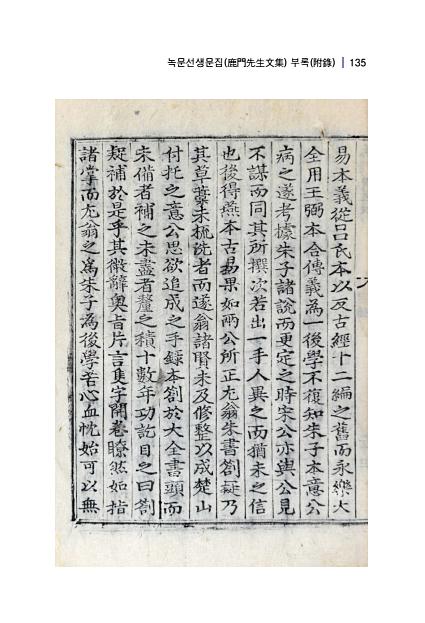 녹문선생문집(鹿門先生文集) 부록(附錄) | 135
易本義從呂氏本以反古經十二編之舊而永樂大
全用王弼本合傳義為一後學不復知朱子本意公
病之遂考據朱子諸說而更定之時宋公亦與公見
不謀而同其所撰次若出一手人異之而猶未之信
也後得燕本古易果如兩公所正尤翁朱書箚疑乃
其草藁未梳洗者而遂翁諸賢未及修整以成楚山
付托之意公思欲追成之手錄本箚於大全書頭而
未備者補之未盡者釐之積十數年功訖目之曰箚
疑補於是乎其微辭奧旨片言隻字開卷瞭然如指
諸掌而尤翁之為朱子為後學苦心血忱始可以無